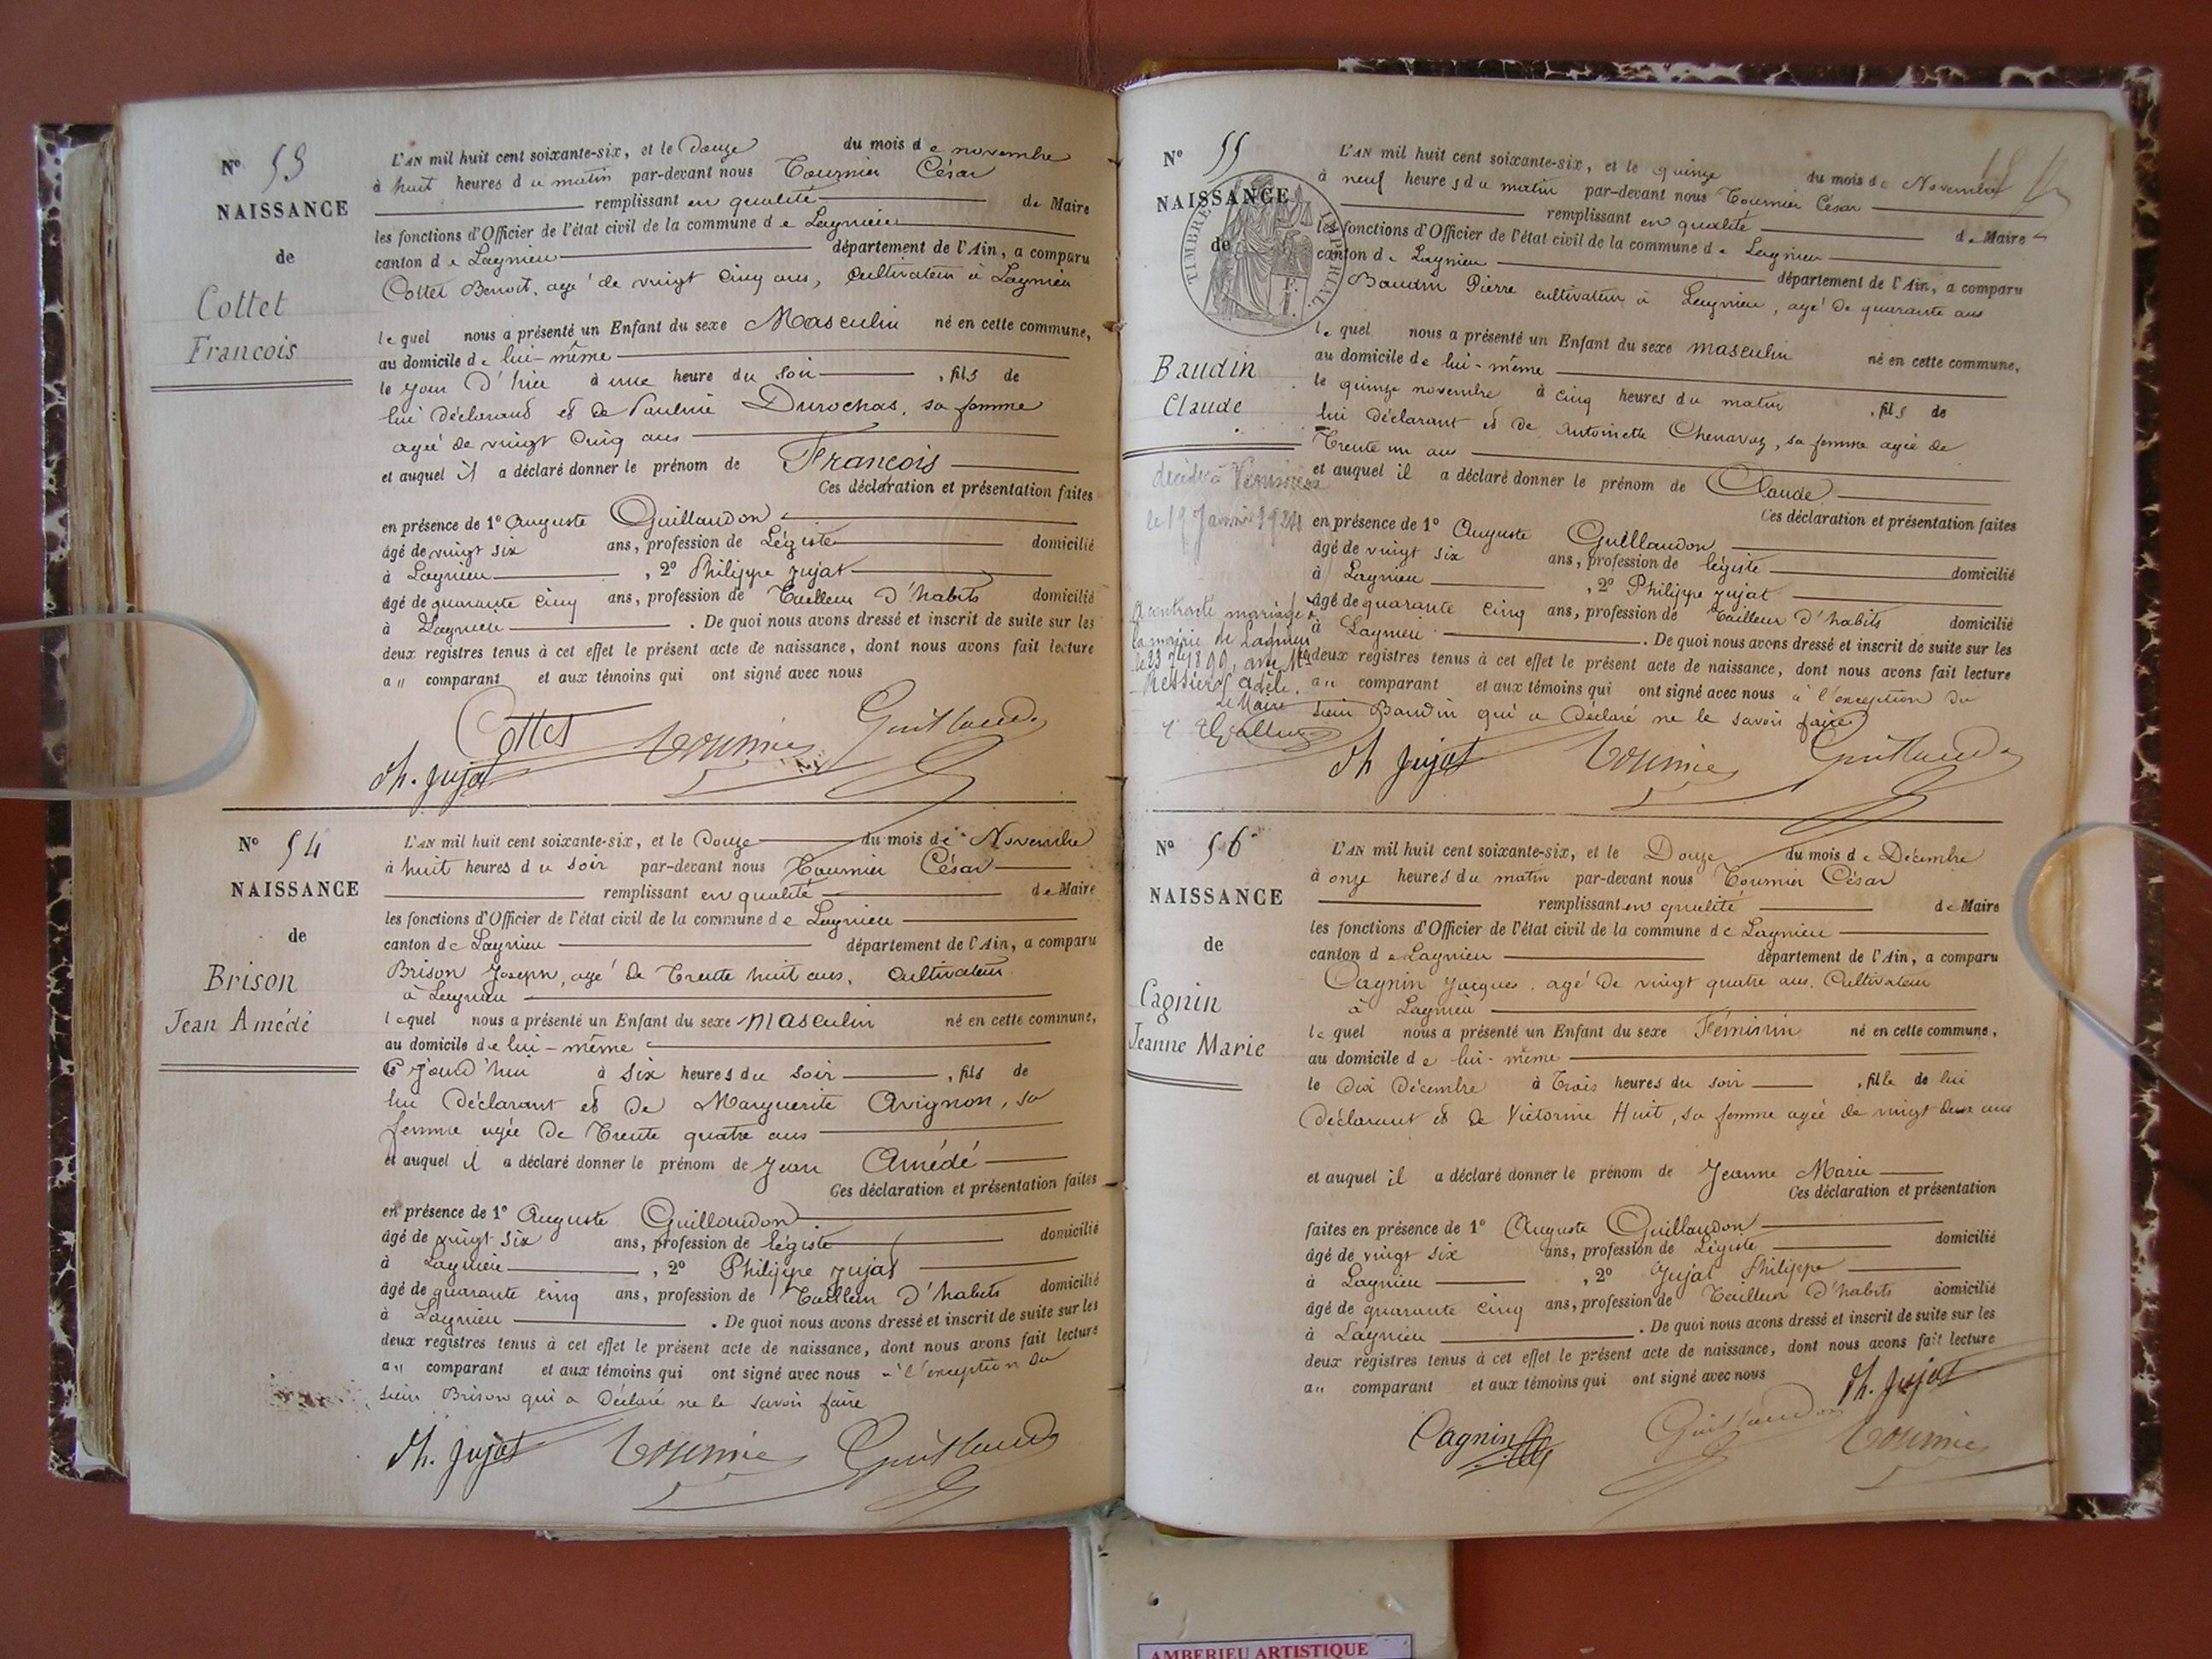 N° 53
NAISSANCE
de
Cottet
Francois
L'AN mil huit cent soixante-six, et le Douze du mois de novembre
à huit heures du matin par-devant nous Tournier César
remplissant en qualité de Maire
les fonctions d'Officier de l'état civil de la commune de Lagnieu
canton de Lagnieu département de l'Ain, a comparu
Cottet Benoit, agé de vingt cinq ans, cultivateur à Lagnieu
lequel nous a présenté un Enfant du sexe Masculin né en cette commune,
au domicile de lui-même
le jour d'hier à une heure du soir, fils de
lui déclarant et de Pauline Durochas, sa femme
agée de vingt cinq ans
et auquel il a déclaré donner le prénom de Francois
Ces déclaration et présentation faites
en présence de 1° Auguste Guillaudon
âgé de vingt six ans, profession de Légiste domicilié
à Lagnieu, 2° Philippe Jujat
âgé de quarante cinq ans, profession de Tailleur d'habits domicilié
à Lagnieu. De quoi nous avons dressé et inscrit de suite sur les
deux registres tenus à cet effet le présent acte de naissance, dont nous avons fait lecture
au comparant et aux témoins qui ont signé avec nous
Cottet Tournier Guillaudon
Ph. Jujat
N° 54
NAISSANCE
de
Brison
Jean Amédé
L'AN mil huit cent soixante-six, et le Douze du mois de Novembre
à huit heures du soir par-devant nous Tournier César
remplissant en qualité de Maire
les fonctions d'Officier de l'état civil de la commune de Lagnieu
canton de Lagnieu département de l'Ain, a comparu
Brison Joseph, agé de Trente huit ans, cultivateur
à Lagnieu
lequel nous a présenté un Enfant du sexe Masculin né en cette commune,
au domicile de lui-même
à six heures du soir, fils de
lui déclarant et de Marguerite Avignon, sa
femme agée de Trente quatre ans
et auquel il a déclaré donner le prénom de Jean Amédé
Ces déclaration et présentation faites
en présence de 1° Auguste Guillaudon
âgé de vingt six ans, profession de légiste domicilié
à Lagnieu, 2° Philippe Jujat
âgé de quarante cinq ans, profession de Tailleur d'habits domicilié
à Lagnieu. De quoi nous avons dressé et inscrit de suite sur les
deux registres tenus à cet effet le présent acte de naissance, dont nous avons fait lecture
au comparant et aux témoins qui ont signé avec nous à l'exception du
sieur Brison qui a déclaré ne le savoir faire
Ph. Jujat Tournier Guillaudon
N° 55
NAISSANCE
de
TIMBRE IMPERIAL
Baudin
Claude
décédé à Vénissieux
le 19 Janvier 1924
A contracté mariage à
la mairie de Lagnieu
Adèle.
Le Maire
L'AN mil huit cent soixante-six, et le quinze du mois de Novembre
à neuf heures du matin par-devant nous Tournier César
remplissant en qualité de Maire
les fonctions d'Officier de l'état civil de la commune de Lagnieu
canton de Lagnieu département de l'Ain, a comparu
Baudin Pierre cultivateur à Lagnieu, agé de quarante ans
lequel nous a présenté un Enfant du sexe masculin né en cette commune,
au domicile de lui-même
le quinze novembre à cinq heures du matin, fils de
lui déclarant et de Antoinette Chenavaz, sa femme agée de
Trente un ans
et auquel il a déclaré donner le prénom de Claude
Ces déclaration et présentation faites
en présence de 1° Auguste Guillaudon
âgé de vingt six ans, profession de légiste domicilié
à Lagnieu, 2° Philippe Jujat
âgé de quarante cinq ans, profession de Tailleur d'habits domicilié
à Lagnieu. De quoi nous avons dressé et inscrit de suite sur les
deux registres tenus à cet effet le présent acte de naissance, dont nous avons fait lecture
au comparant et aux témoins qui ont signé avec nous à l'exception du
sieur Baudin qui a déclaré ne le savoir faire
Ph Jujat Tournier Guillaudon
N° 56
NAISSANCE
de
Cagnin
Jeanne Marie
L'AN mil huit cent soixante-six, et le Douze du mois de Décembre
à onze heures du matin par-devant nous Tournier César
remplissant en qualité de Maire
les fonctions d'Officier de l'état civil de la commune de Lagnieu
canton de Lagnieu département de l'Ain, a comparu
Cagnin Jacques, agé de vingt quatre ans, Cultivateur
à Lagnieu
lequel nous a présenté un Enfant du sexe Féminin né en cette commune,
au domicile de lui-même
le dix Décembre à Trois heures du soir, fille de lui
déclarant et de Victorine Huit, sa femme agée de vingt deux ans
et auquel il a déclaré donner le prénom de Jeanne Marie
Ces déclaration et présentation
faites en présence de 1° Auguste Guillaudon
âgé de vingt six ans, profession de Légiste domicilié
à Lagnieu, 2° Jujat Philippe
âgé de quarante cinq ans, profession de Tailleur d'habits domicilié
à Lagnieu. De quoi nous avons dressé et inscrit de suite sur les
deux registres tenus à cet effet le présent acte de naissance, dont nous avons fait lecture
au comparant et aux témoins qui ont signé avec nous
Ph. Jujat
Cagnin Guillaudon Tournier
AMBERIEU ARTISTIQUE